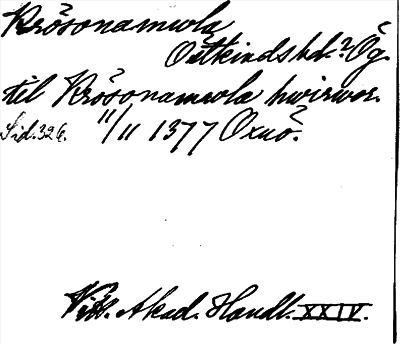 Krősonamwla
Östkinds hd.? Ög.
til Krősonamwla hwirwor.
Sid. 326. 11/11 1377 Oxnö?
Vitt. Akad. Handl. XXIV.